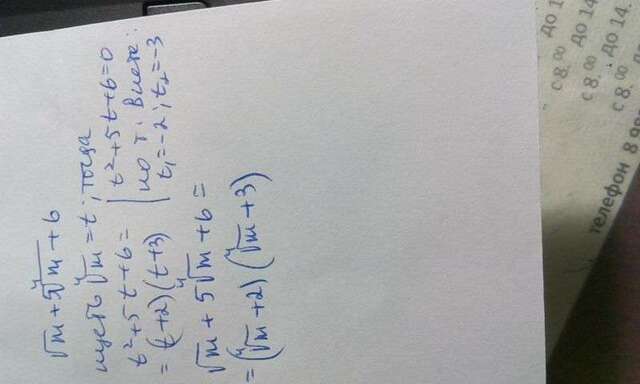 √m + 5∜m + 6
пусть ∜m = t; тогда
t² + 5t + 6 =
= (t+2)(t+3)
t² + 5t + 6 = 0
по т. Виета:
t₁ = -2; t₂ = -3
√m + 5∜m + 6 =
= (∜m + 2)(∜m + 3)
до 1
с 8.⁰⁰ до 14
с 8.⁰⁰ до 14.
телефон 8 9 с 8.⁰⁰ до